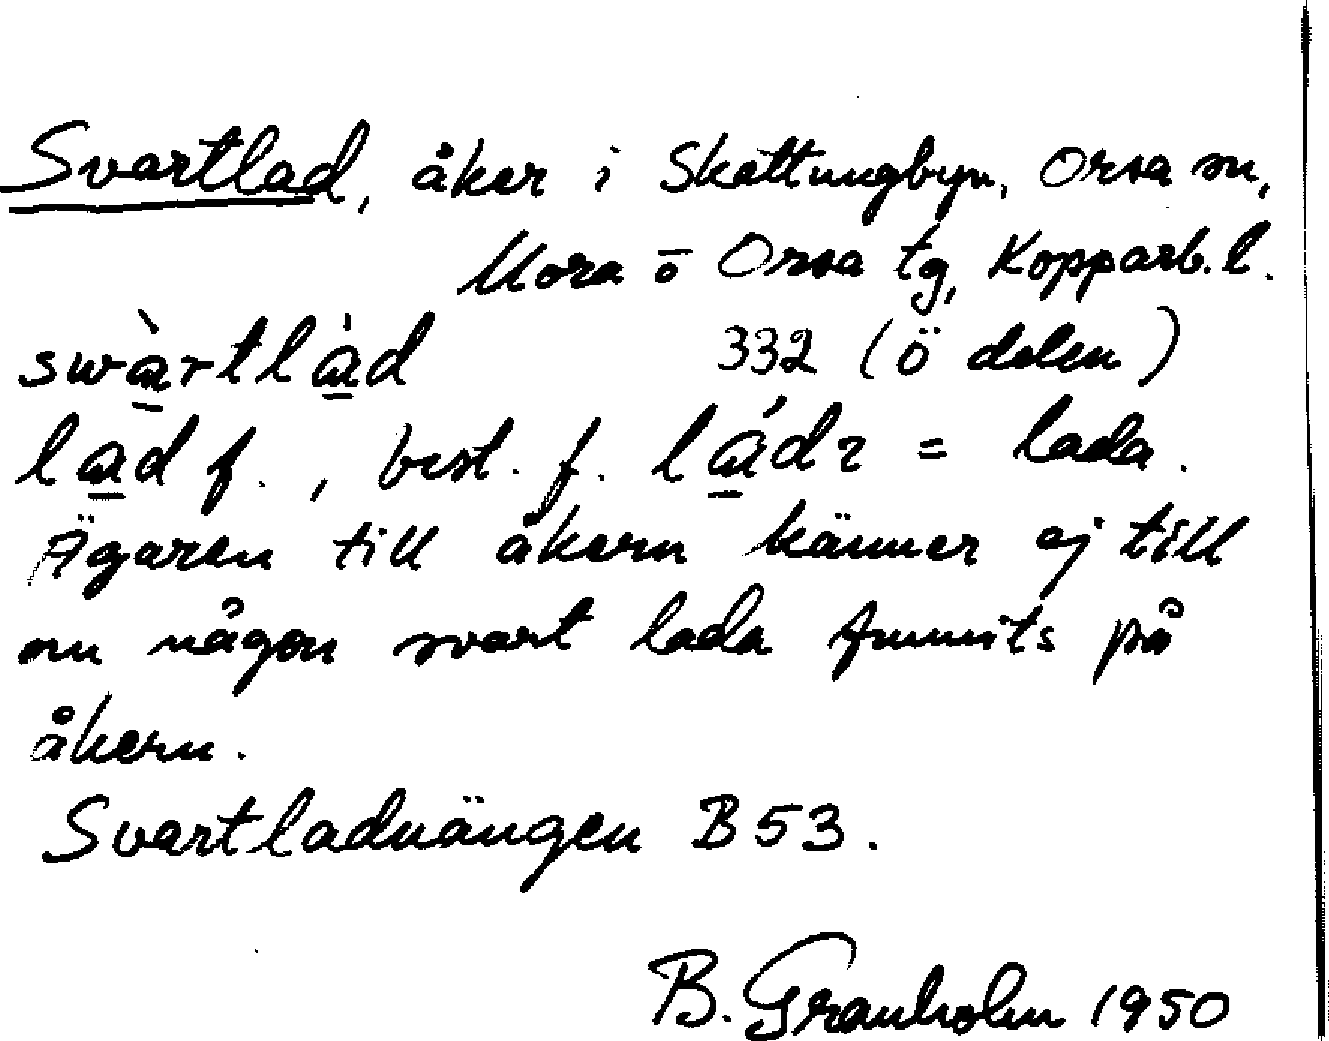 Svartlad, åker i Skattungbyn, Orsa sn,
Mora o Orsa tg, Kopparb. l.
swàrtlàd 332 (ö delen)
lad f., best. f. ládɿ = lada.
Ägaren till åkern känner ej till
om någon svart lada funnits på
åkern.
Svartladuängen B53.
B. Granholm 1950